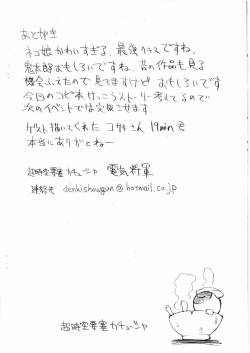 あとがき
ネコ娘かわいすぎる。最強クラスですね。
鬼太郎おもしろいですね、昔の作品も見る
機会ふえたので見てますけど おもしろいです
今回のコピ本けっこうストーリー考えてるので
次のイベントでは完成させます。
ゲスト描いてくれた コザキさん 19min君
本当にありがとねー
超時空要塞カチューシャ 電気将軍
連絡先 denkishougun@hotmail.co.jp
超時空要塞カチューシャ